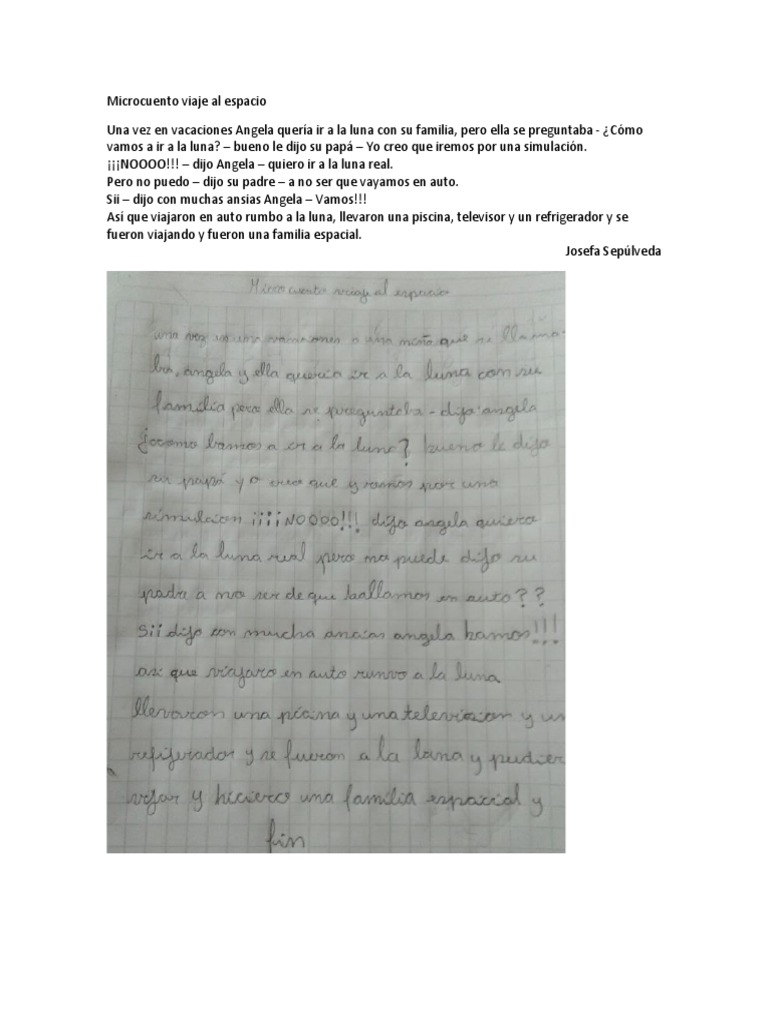 Microcuento viaje al espacio
Una vez en vacaciones Angela quería ir a la luna con su familia, pero ella se preguntaba - ¿Cómo
vamos a ir a la luna? – bueno le dijo su papá – Yo creo que iremos por una simulación.
¡¡¡NOOOO!!! – dijo Angela – quiero ir a la luna real.
Pero no puedo – dijo su padre – a no ser que vayamos en auto.
Sii – dijo con muchas ansias Angela – Vamos!!!
Así que viajaron en auto rumbo a la luna, llevaron una piscina, televisor y un refrigerador y se
fueron viajando y fueron una familia espacial.
Josefa Sepúlveda
Micro cuento viaje al espacio
una vez en una vacaciones a una que se llama-
ba, angela y ella queria ir a la luna con su
familia pero ella se preguntaba - dijo angela
bamos a ir a la luna? bueno le dijo
su papá yo creo que yramos por una
simulcion ¡¡¡¡NOOOO!!! dijo angela quiero
ir a la luna real pero no puede dijo su
padre a no ser de que ballamos en auto??
sii dijo con mucha ancias angela bamos!!!
asi que viajaro en auto runvo a la luna
llevaron una picina y una television y un
refijerador y se fueron a la luna y pudier
y hiciero una familia espacial y
fin